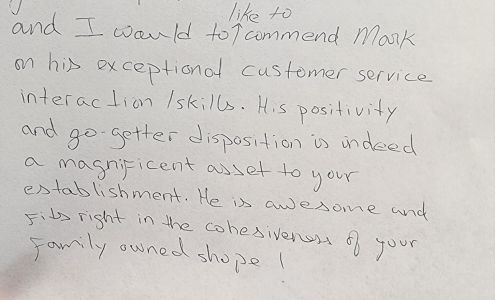 like to
and I would to↑commend Mark
on his exceptional customer service
interaction /skills. His positivity
and go-getter disposition is indeed
a magnificent asset to your
establishment. He is awesome and
fits right in the cohesiveness of your
family owned shope !